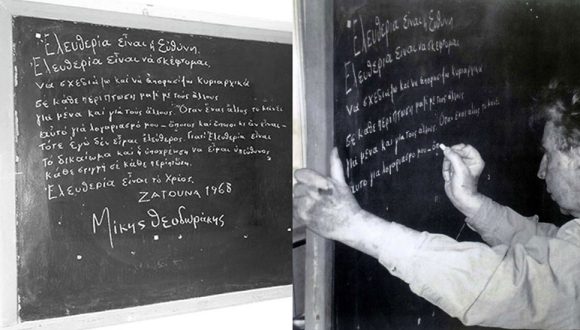 Ἐλευθερία εἶναι ἡ Εὐθύνη.
Ἐλευθερία εἶναι νά σκέφτομαι,
νά σχεδιάζω καί νά ἀποφασίζω κυριαρχικά
σέ κάθε περίπτωση μαζί με τούς ἄλλους
γιά μένα καί γιά τούς ἄλλους. Ὅταν ἕνας ἄλλος τό κάνει
αὐτό γιά λογαριασμό μου — ὅποιος καί ὅποιοι κι ἄν εἶναι —
τότε ἐγώ δέν εἶμαι ἐλεύθερος. Γιατί Ἐλευθερία εἶναι
τό δικαίωμα καί ἡ ὑποχρέωση νά εἶμαι ὑπεύθυνος
κάθε στιγμή σέ κάθε περίπτωση.
Ἐλευθερία εἶναι τό Χρέος.
ΖΑΤΟΥΝΑ 1968
Μίκης Θεοδωράκης
Ἐλευθερία εἶναι ἡ Εὐθύνη
Ἐλευθερία εἶναι νά σκέφτομαι,
νά σχεδιάζω καί νά ἀποφασίζω κυριαρχικά
σέ κάθε περίπτωση μαζί με τούς ἄλλους
γιά μένα καί γιά τούς ἄλλους. Ὅταν ἕνας ἄλλος τό κάνει
αὐτό γιά λογαριασμό μου —